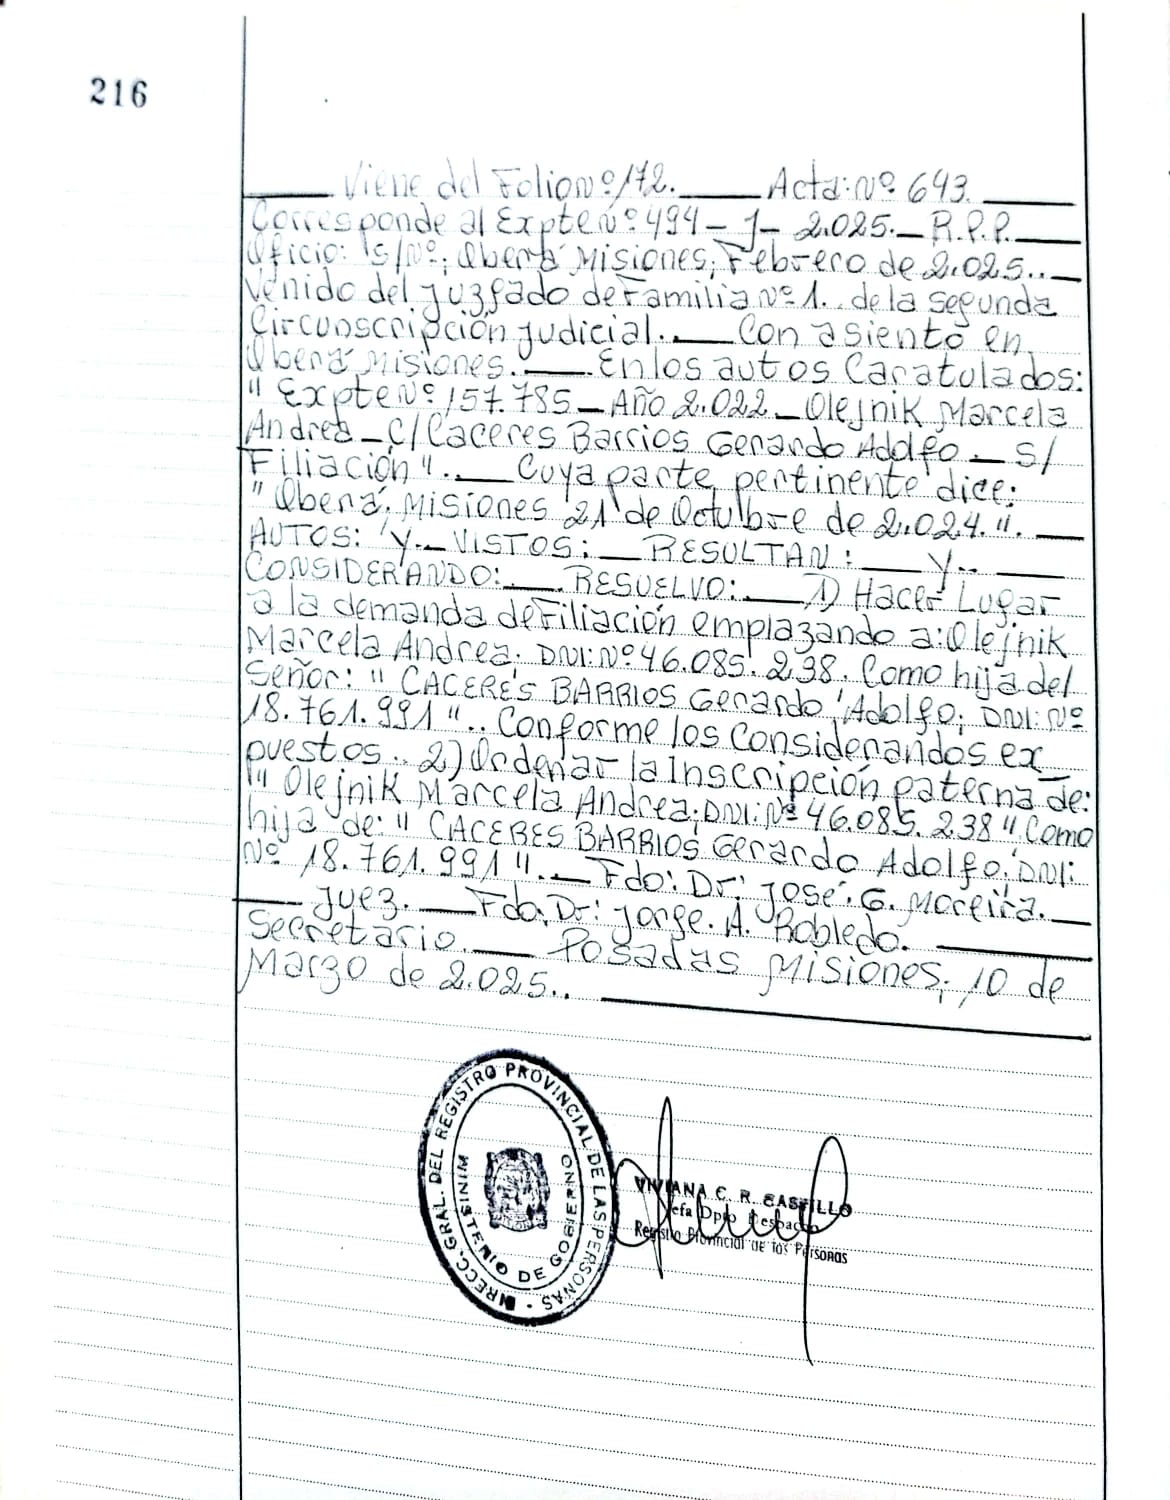 216
Viene del Folio Nº 172. Acta: Nº 643.
Corresponde al Expte Nº 494 - J - 2.025. - R.P.P.
Oficio: S/Nº; Oberá Misiones; Febrero de 2.025..
Venido del Juzgado de Familia Nº 1.. de la Segunda
Circunscripción Judicial. Con asiento en
Oberá Misiones. En los autos Caratulados:
" Expte Nº 157.785 - Año 2.022 - Olejnik Marcela
Andrea - C/ Caceres Barrios Gerardo Adolfo - S/
Filiación". Cuya parte pertinente dice:
" Oberá. Misiones 21 de Octulbre de 2.024.".
AUTOS: Y.- VISTOS: RESULTAN: Y..
CONSIDERANDO: RESUELVO: 1) Hacer Lugar
a la demanda de Filiación emplazando a: Olejnik
Marcela Andrea. DNI: Nº 46.085.238. Como hija del
Señor: " CACERES BARRIOS Gerardo Adolfo; DNI: Nº
18.761.991".. Conforme los Considerandos ex_
puestos.. 2) Ordenar la Inscripción paterna de:
" Olejnik Marcela Andrea; DNI: Nº 46.085.238" Como
hija de: " CACERES BARRIOS Gerardo Adolfo; DNI:
Nº 18.761.991". Fdo: Dr: José. G. Moreira.
Juez. Fdo. Dr: Jorge. A. Robledo.
Secretario. Posadas Misiones; 10 de
Marzo de 2.025..
DIRECC. GRAL. DEL REGISTRO PROVINCIAL DE LAS PERSONAS
MINISTERIO DE GOBIERNO
VIVIANA C. R. CASTILLO
Jefa Dpto Despacho
Registro Provincial de las Personas